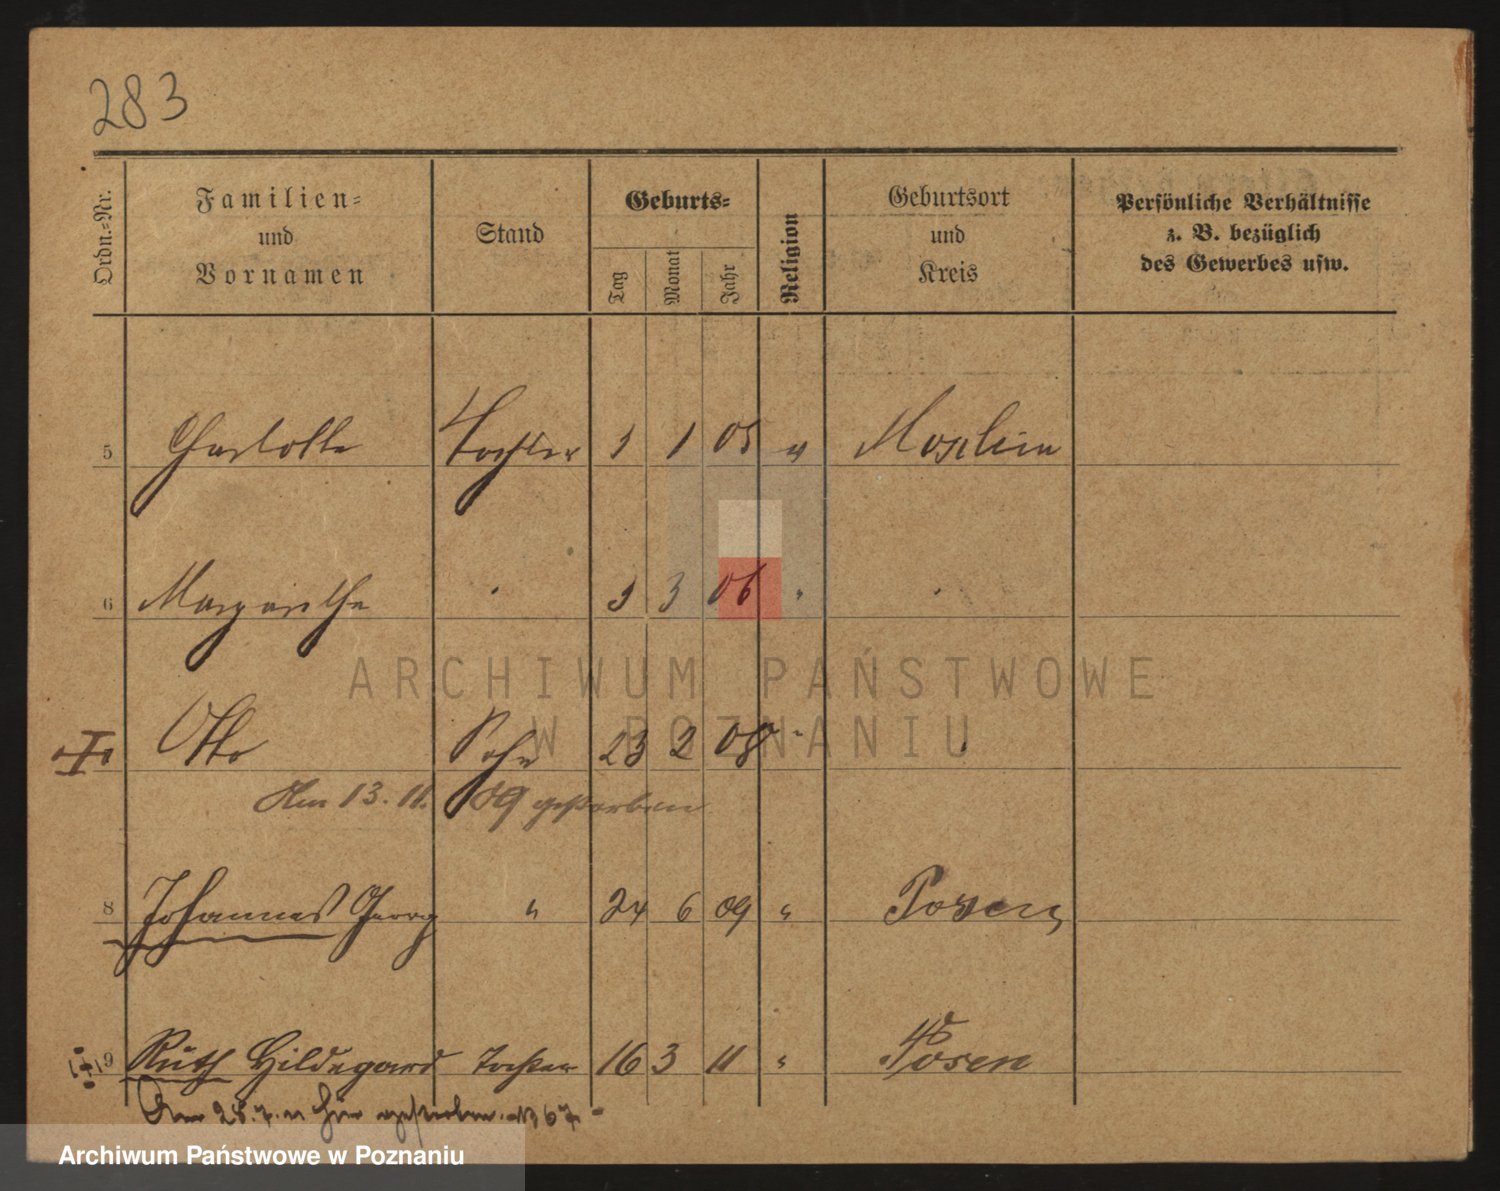 283
Ordn.-Nr.
Familien-
und
Vornamen
Stand
Geburts-
Tag
Monat
Jahr
Religion
Geburtsort
und
Kreis
Persönliche Verhältnisse
z. B. bezüglich
des Gewerbes usw.
5 Charlotte Tochter 1 1 05 " Moschin
6 Margarethe " 1 3 06 " "
Otto Sohn 23 2 08 " "
Am 13. 11. 09 gestorben
8 Johannes Georg " 24 6 09 " Posen
9 Ruth Hildegard Tochter 16 3 11 " Posen
Am 28. 7. 11 hier gestorben.
ARCHIWUM PAŃSTWOWE
W POZNANIU
Archiwum Państwowe w Poznaniu